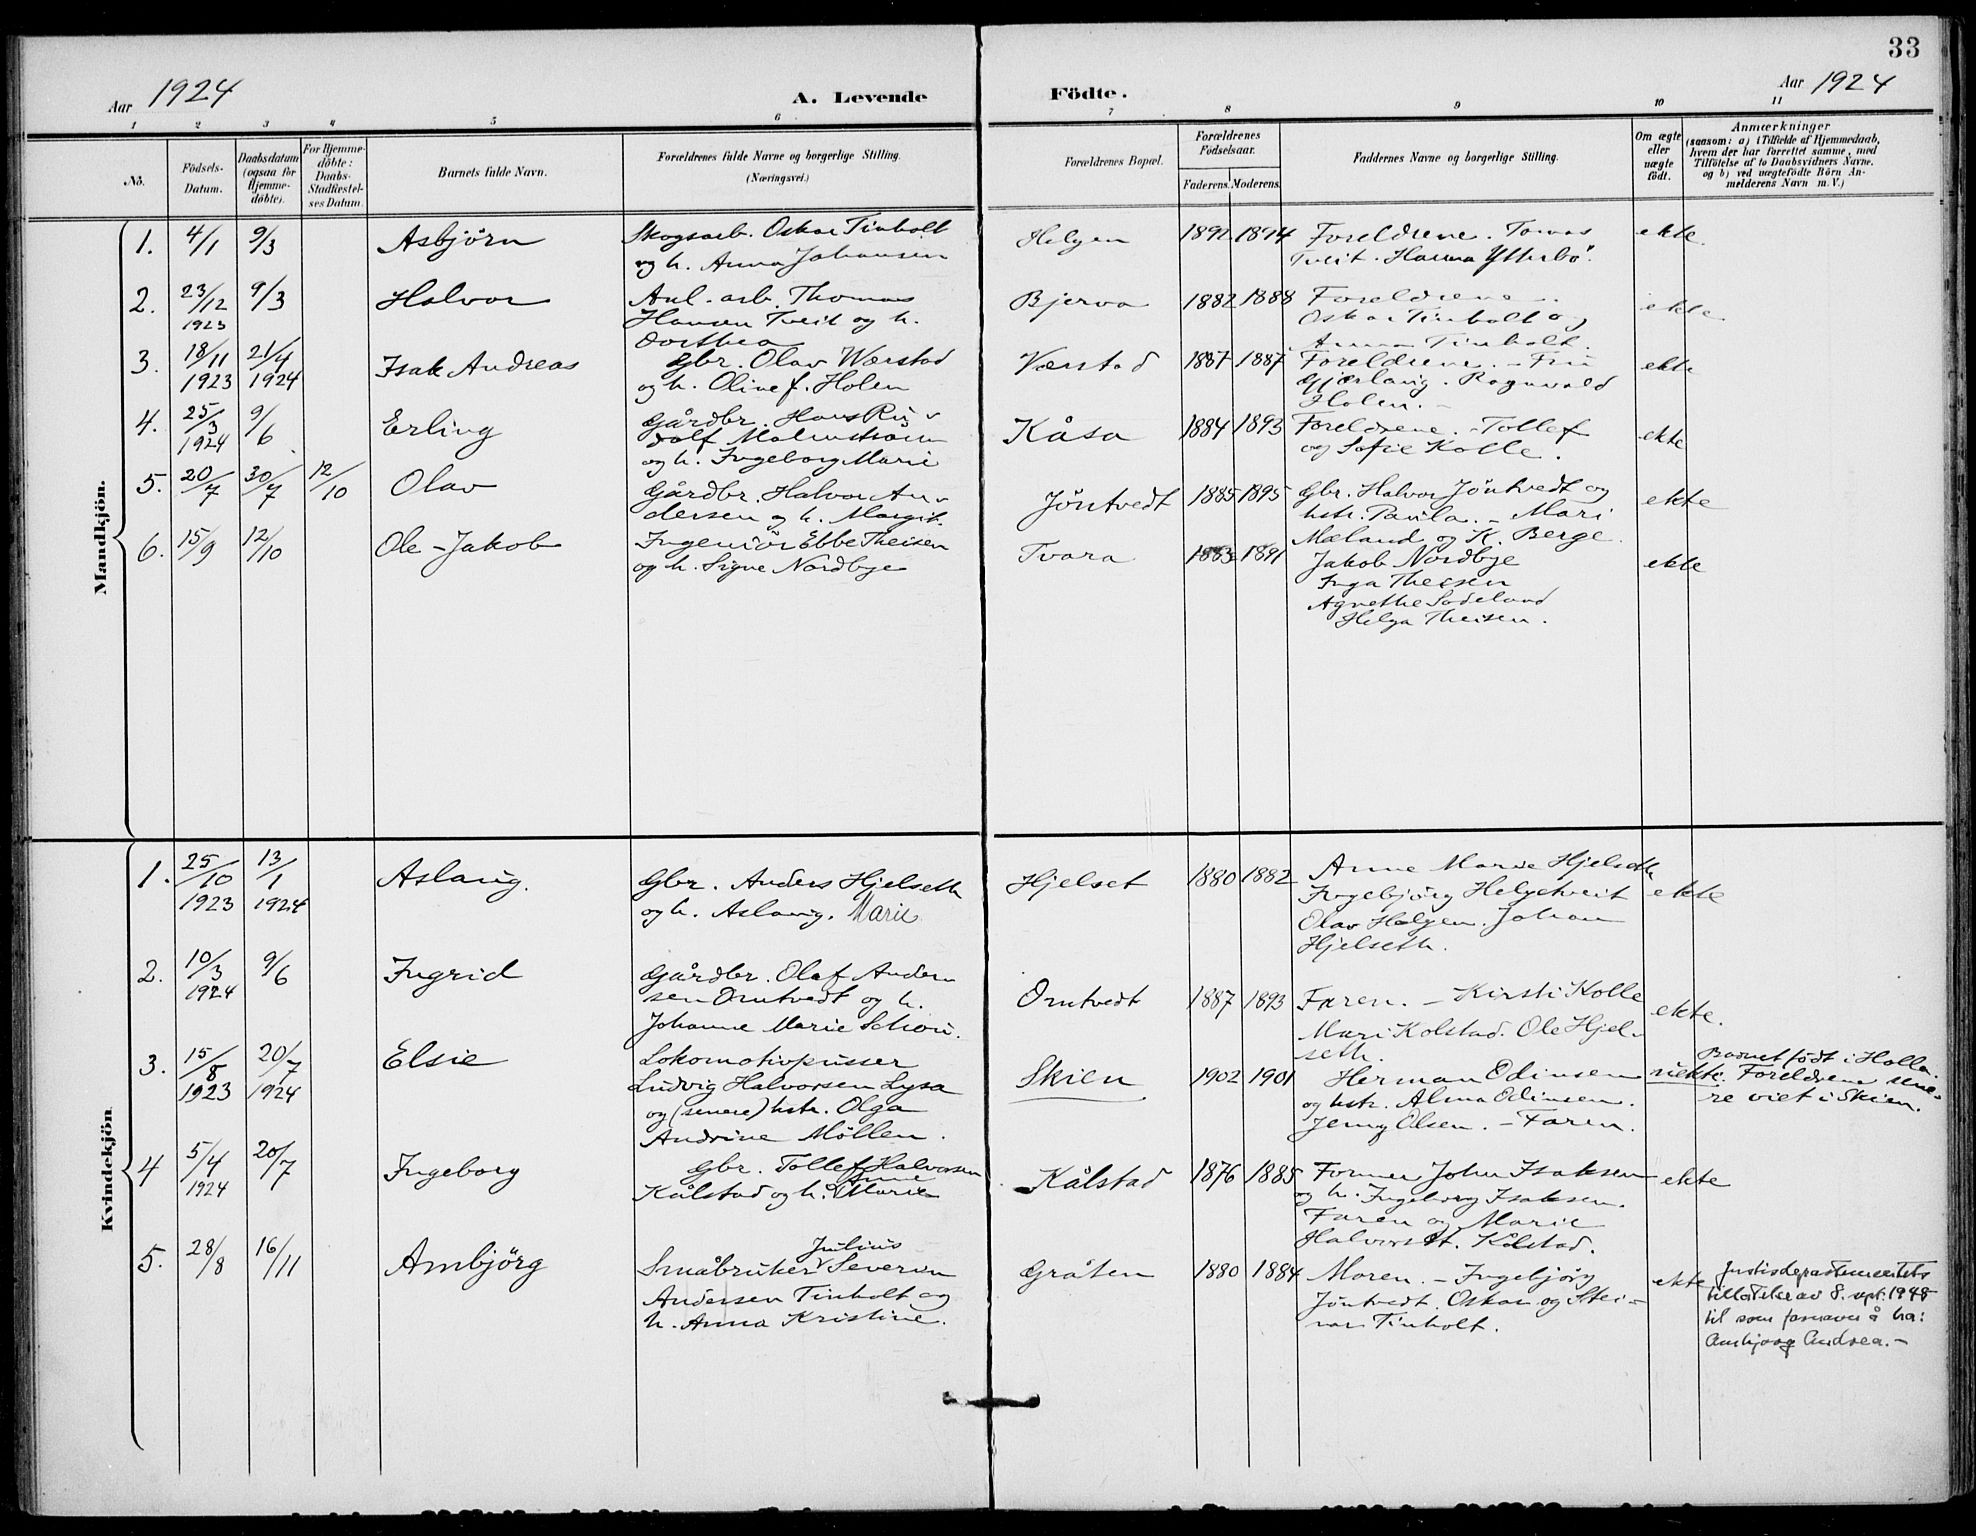 33
Aar 1924 A. Levende Födte. Aar 1924
1 2 3 4 5 6 7 8 9 10 11
No.
Födsels-
Datum.
Daabsdatum
(ogsaa for
Hjemme-
döbte).
For Hjemme-
döbte:
Daabs-
Stadfæstel-
ses Datum.
Barnets fulde Navn.
Forældrenes fulde Navne og borgerlige Stilling.
(Næringsvei.)
Forældrenes Bopæl.
Forældrenes
Födselsaar.
Faderens. Moderens.
Faddernes Navne og borgerlige Stilling.
Om ægte
eller
uægte
födt.
Anmærkninger
(saasom: a) i Tilfælde af Hjemmedaab,
hvem der har forrettet samme, med
Tilföielse af to Daabsvidners Navne.
og b) ved uægtefödte Börn An-
melderens Navn m. V.)
Mandkjön.
1. 4/1 9/3 Asbjörn
Skogsarb. Oskar Tinholt
og h. Anna Johansen
Helgen 1892 1894
Foreldrene. Tomas
Tveit. Hanna Ytterbö.
ekte.
2. 23/12 1923 9/3 Halvor
Anl. arb. Thomas
Hansen Tveit og h.
Dorthea
Bjerva 1882 1888
Foreldrene.
Oskar Tinholt og
Anna Tinholt.
ekte.
3. 18/11 1923 21/4 1924 Isak Andreas
Gbr. Olav Wærstad
og h. Oline f. Holen
Værstad 1887 1887
Foreldrene. - Fru
Gjærlaug. Ragnvald
Holen. -
ekte
4. 25/3 1924 9/6 Erling
Gårdbr. Hans Ru-
dolf Malmström
og h. Ingeborg Marie
Kåsa 1884 1893
Foreldrene. - Tollef
og Sofie Kolle.
ekte
5. 20/7 30/7 12/10 Olav
Gårdbr. Halvor An-
dersen og h. Margit.
Jöntvedt 1885 1895
Gbr. Halvor Jöntvedt og
hstr. Paula. - Mari
Mæland og K. Berge.
ekte
6. 15/9 12/10 Ole-Jakob
Ingeniör Ebbe Theisen
og h. Signe Nordbye
Tvara 1883 1891
Jakob Nordbye
Inga Theesen
Agnethe Sodeland
Helga Theisen.
ekte
Kvindekjön.
1. 25/10 1923 13/1 1924 Aslaug.
Gbr. Anders Hjelseth
og h. Aslaug. Marie
Hjelset 1880 1882
Anne Marie Hjelseth
Ingebjörg Helgetveit
Olav Helgen. Johan
Hjelseth.
ekte
2. 10/3 1924 9/6 Ingrid
Gårdbr. Olaf Ander
sen Omtvedt og h.
Johanne Marie Schou.
Omtvedt 1887 1893
Faren. - Kirsti Kolle
Mari Kolstad. Ole Hjel-
seth.
ekte.
3. 15/8 1923 20/7 1924 Elsie
Lokomotivpusser
Ludvig Halvorsen Lysa
og (senere) hstr. Olga
Andrine Möllen.
Skien 1902 1901
Herman Odinsen
og hstr. Alma Odinsen.
Jenny Olsen. - Faren.
uekte.
Barnet födt i Holla.
Foreldrene sene-
re viet i Skien.
4 5/4 1924 20/7 Ingeborg
Gbr. Tollef Halvorsen
Kålstad og h. Anne Marie
Kålstad 1876 1885
Former John Isaksen
og h. Ingeborg Isaksen.
Faren og Marie
Halvorsdt. Kålstad.
ekte
5. 28/8 16/11 Ambjörg
Småbruker Julius Severin
Andersen Tinholt og
h. Anna Kristine.
Gråten 1880 1884
Moren. - Ingebjörg
Jöntvedt. Oskar og Stei-
nar Tinholt.
ekte
Justisdepartementets
tillatelse av 8. spt. 1948
til som fornavn å ha:
Ambjorg Andrea. -